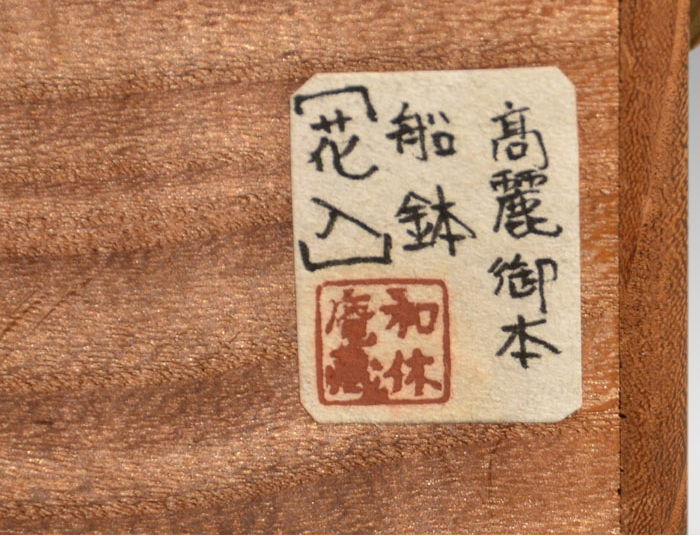 髙麗御本
船鉢
［花入］
和休
庵蔵